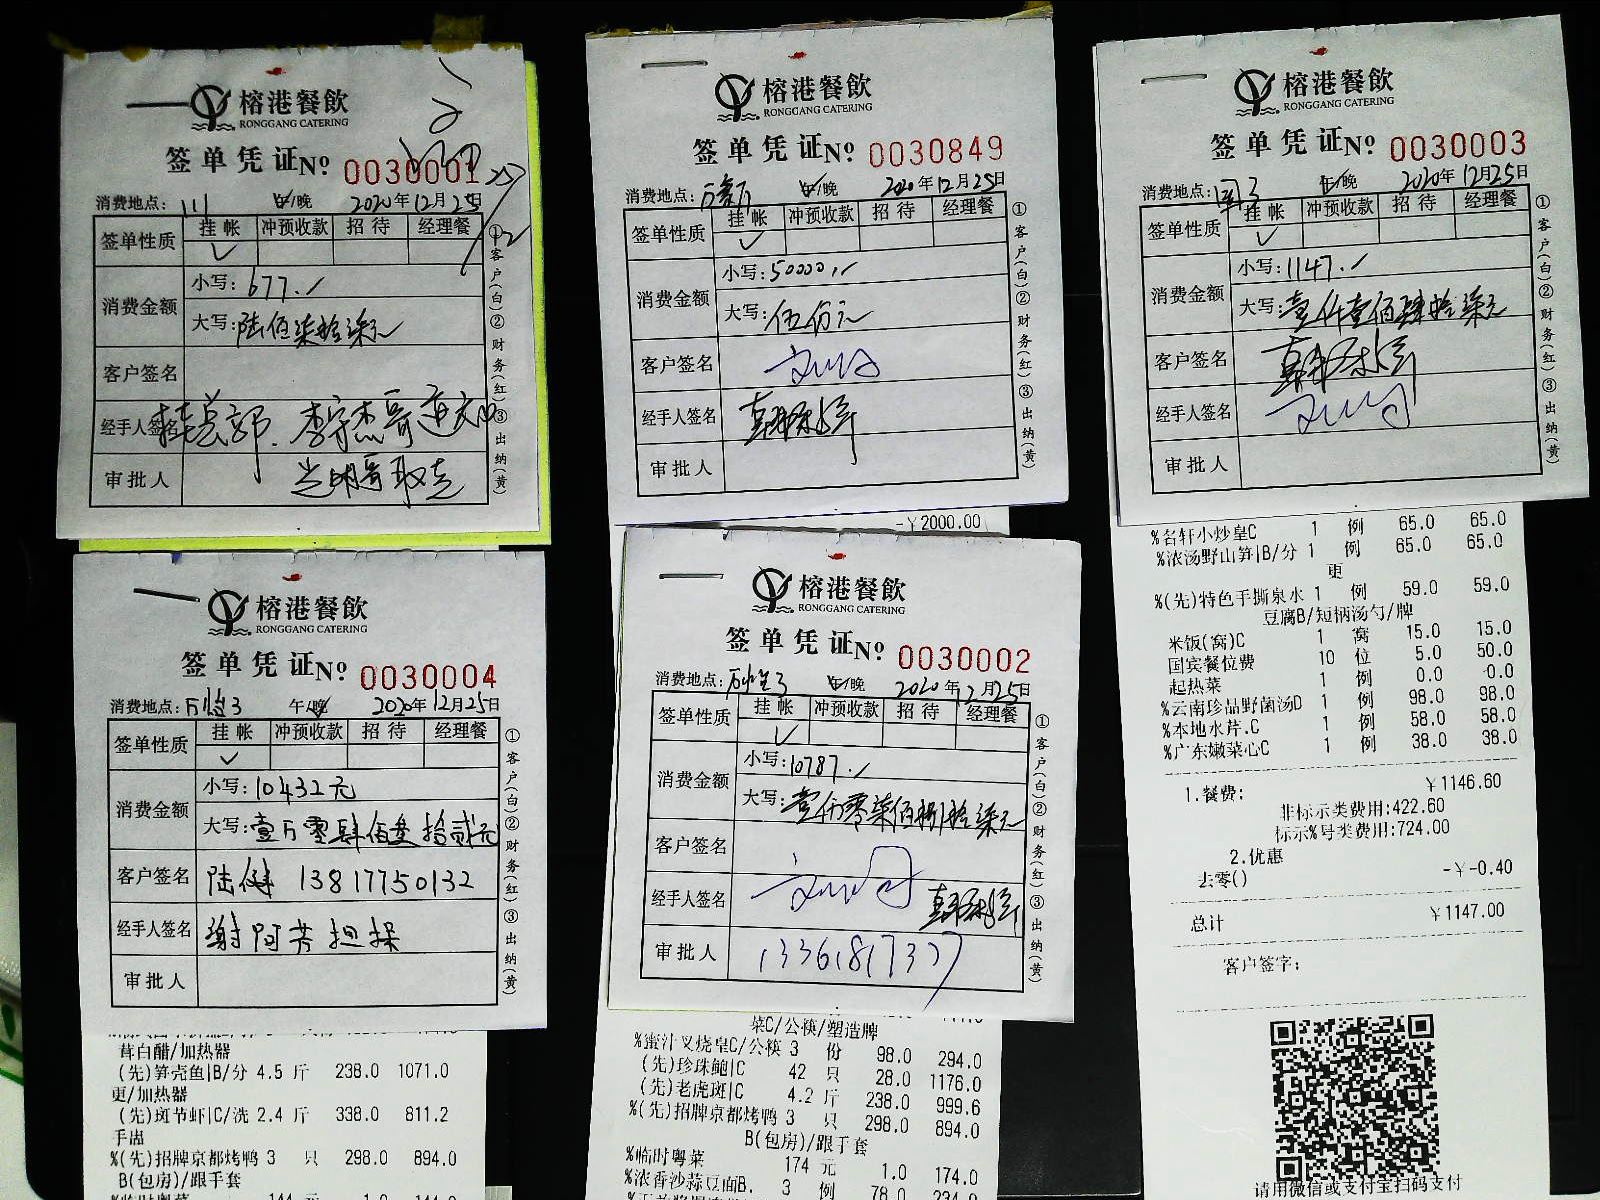 榕港餐飲
RONGGANG CATERING
签单凭证No 0030001
消费地点: 111 午/晚 2020年12月25日
签单性质 挂帐 冲预收款 招待 经理餐
✓
消费金额 小写: 677.
大写: 陆佰柒拾柒元
客户签名
经手人签名
审批人
①客户(白)②财务(红)③出纳(黄)
榕港餐飲
RONGGANG CATERING
签单凭证No 0030849
消费地点: 午/晚 2020年12月25日
签单性质 挂帐 冲预收款 招待 经理餐
✓
消费金额 小写: 50000.
大写: 伍万元
客户签名
经手人签名
审批人
①客户(白)②财务(红)③出纳(黄)
-￥2000.00
榕港餐飲
RONGGANG CATERING
签单凭证No 0030003
消费地点: 国3 午/晚 2020年12月25日
签单性质 挂帐 冲预收款 招待 经理餐
✓
消费金额 小写: 1147.
大写: 壹仟壹佰肆拾柒元
客户签名
经手人签名
审批人
①客户(白)②财务(红)③出纳(黄)
%名轩小炒皇C 1 例 65.0 65.0
%浓汤野山笋|B/分 1 例 65.0 65.0
更
%(先)特色手撕泉水 1 例 59.0 59.0
豆腐B/短柄汤勺/牌
米饭(窝)C 1 窝 15.0 15.0
国宾餐位费 10 位 5.0 50.0
起热菜 1 例 0.0 0.0
%云南珍品野菌汤D 1 例 98.0 98.0
%本地水芹.C 1 例 58.0 58.0
%广东嫩菜心C 1 例 38.0 38.0
1.餐费: ￥1146.60
非标示类费用:422.60
标示%号类费用:724.00
2.优惠
去零() -￥-0.40
总计 ￥1147.00
客户签字:
请用微信或支付宝扫码支付
榕港餐飲
RONGGANG CATERING
签单凭证No 0030004
消费地点: 午/晚 2020年12月25日
签单性质 挂帐 冲预收款 招待 经理餐
✓
消费金额 小写: 10432元
大写: 壹万零肆佰叁拾贰元
客户签名 陆健 13817750132
经手人签名 谢阿芳担保
审批人
①客户(白)②财务(红)③出纳(黄)
茸白醋/加热器
(先)笋壳鱼|B/分 4.5 斤 238.0 1071.0
更/加热器
(先)斑节虾|C/洗 2.4 斤 338.0 811.2
手盅
%(先)招牌京都烤鸭 3 只 298.0 894.0
B(包房)/跟手套
%临时粤菜 144 元 1.0 144.0
榕港餐飲
RONGGANG CATERING
签单凭证No 0030002
消费地点: 午/晚 2020年12月25日
签单性质 挂帐 冲预收款 招待 经理餐
✓
消费金额 小写: 10787.
大写: 壹万零柒佰捌拾柒元
客户签名
经手人签名
审批人 13361817377
①客户(白)②财务(红)③出纳(黄)
菜C/公筷/塑造牌
%蜜汁叉烧皇C/公筷 3 份 98.0 294.0
(先)珍珠鲍|C 42 只 28.0 1176.0
(先)老虎斑|C 4.2 斤 238.0 999.6
%(先)招牌京都烤鸭 3 只 298.0 894.0
B(包房)/跟手套
%临时粤菜 174 元 1.0 174.0
%浓香沙蒜豆面B. 3 例 78.0 234.0